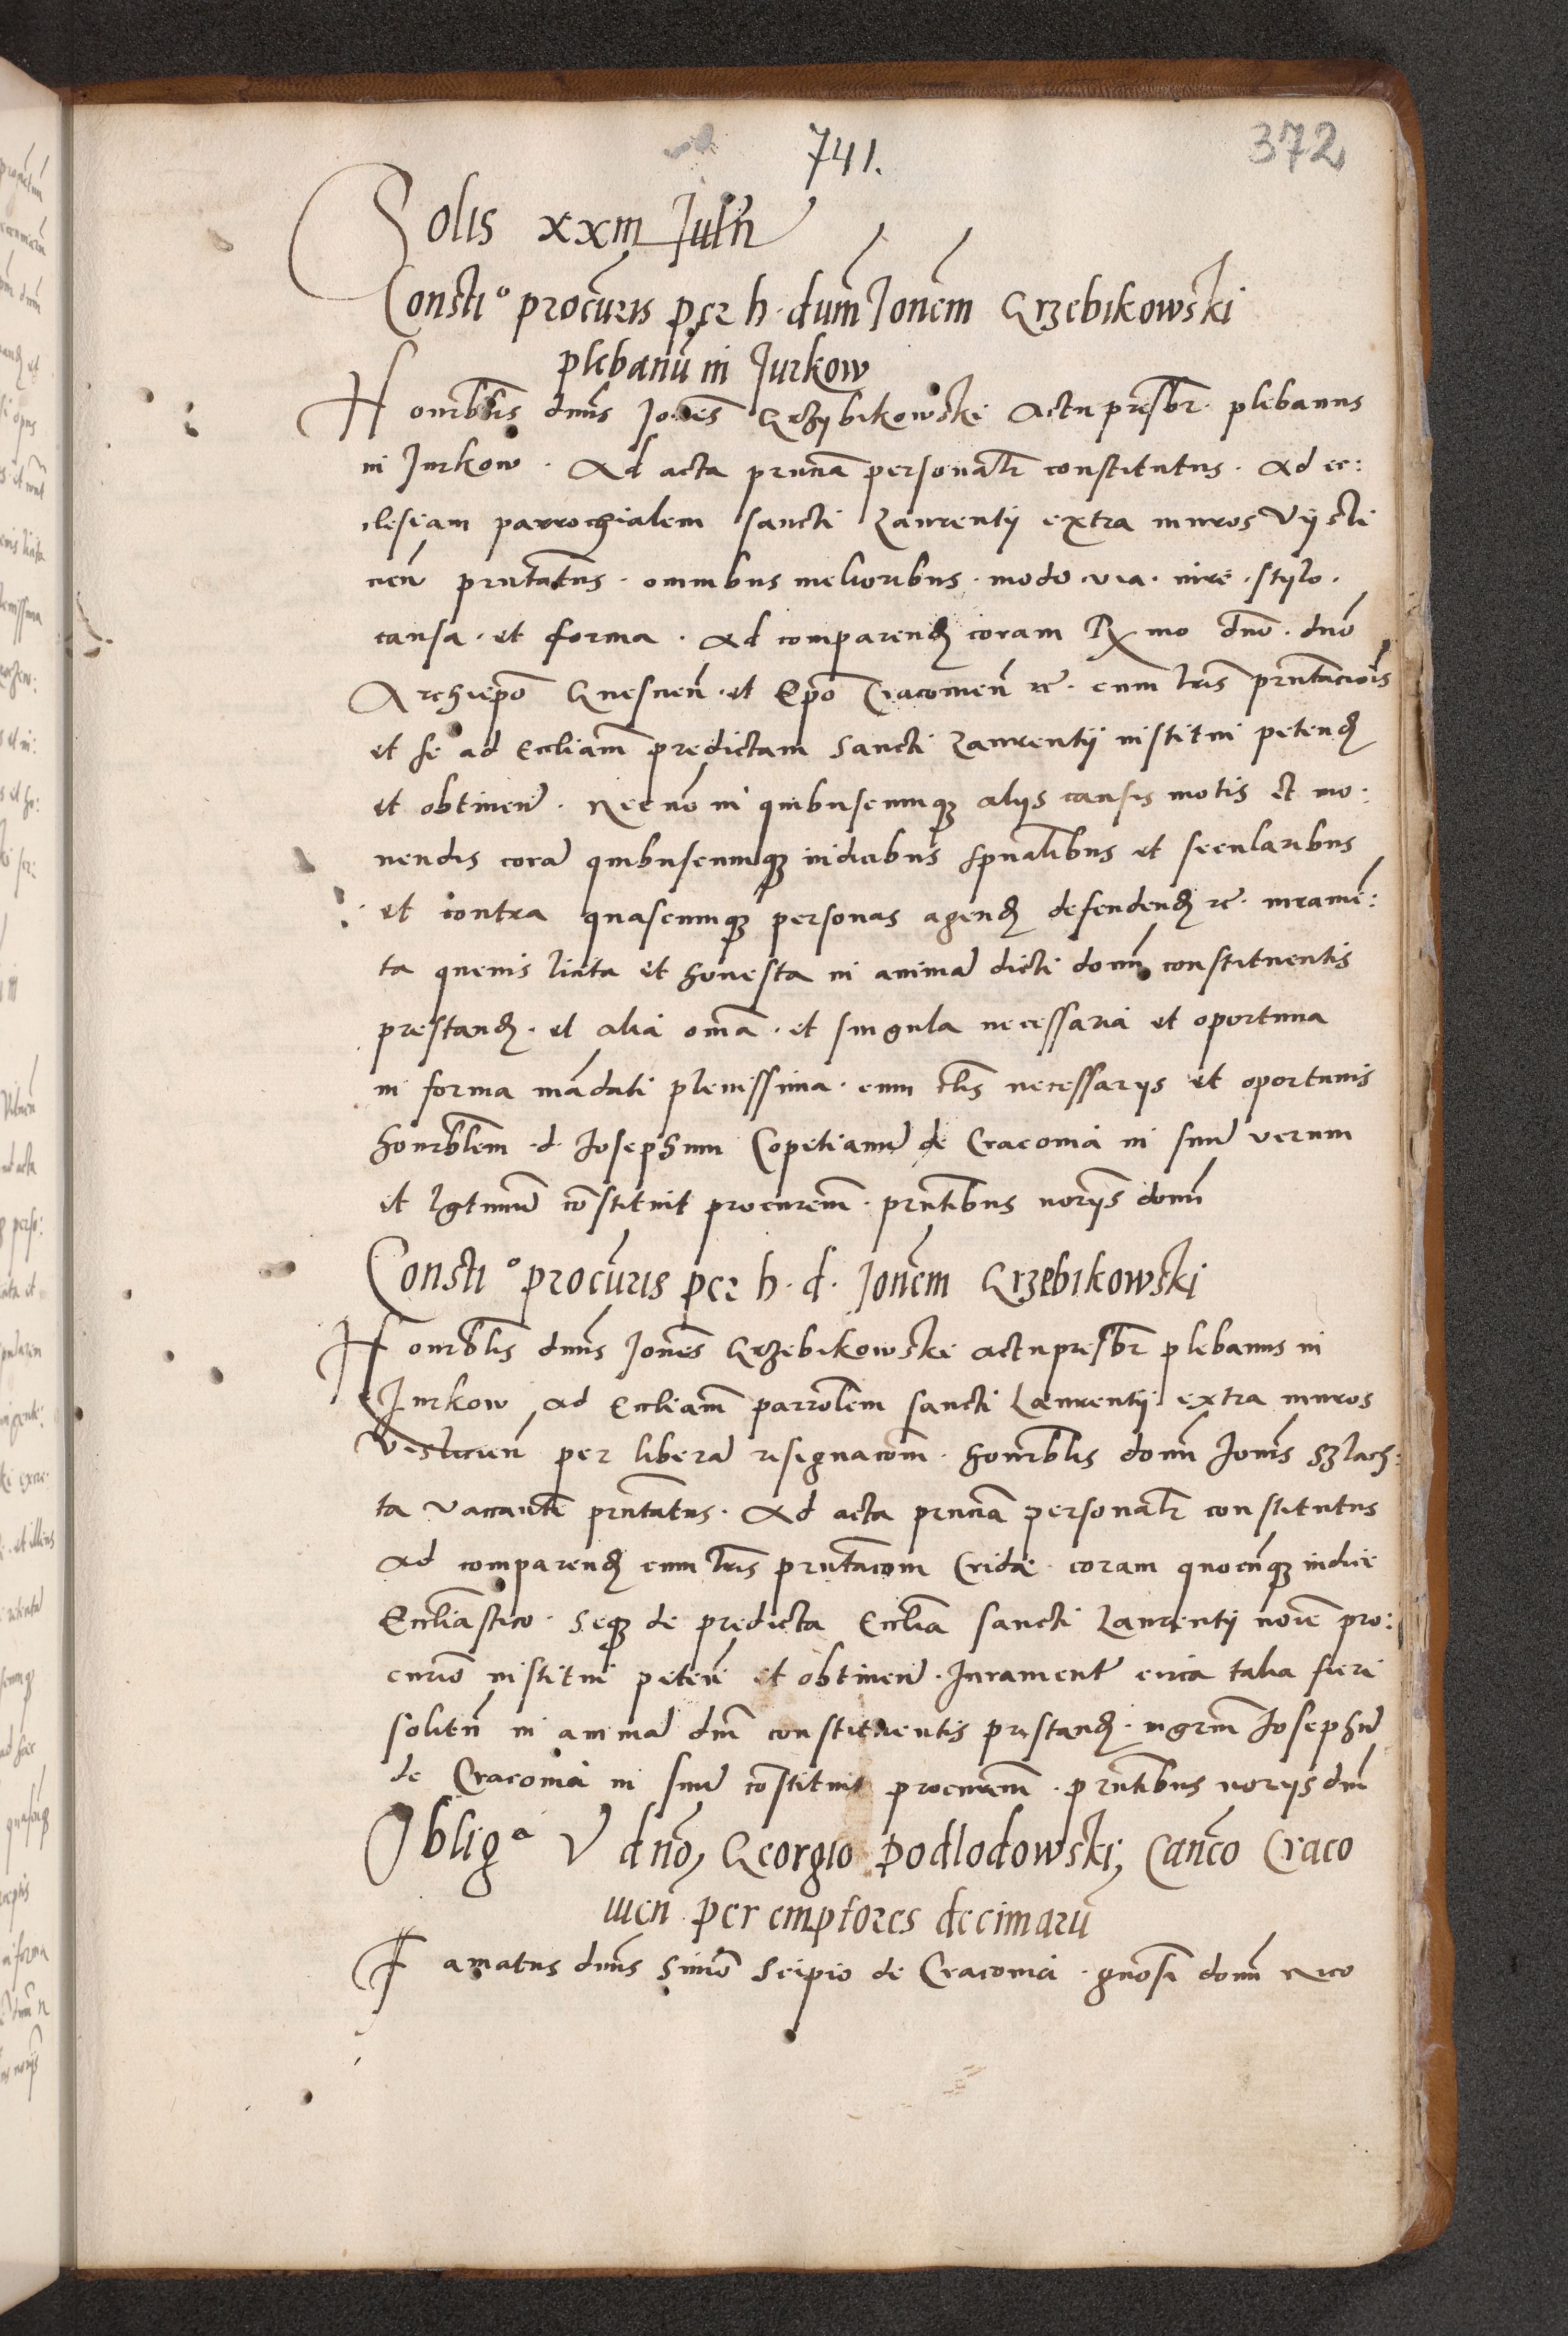 741.
372
Solis xxiii Julii
Constio procuris per h. dum Ionem Grzebikowski
plebanu in Jurkow
Honorblis dnus Joanes Grzybikowski actu presbr plebanus
in Jurkow. Ad acta prncia personalr constitutus. Ad ec:
clesiam parrochialem sancti Laurentii extra muros Viisli
cien prntatus. omnibus melioribus. modo. via. iure. stylo.
causa. et forma. Ad comparend coram Rmo dno. dno
Archiepo Gnesnen. et Epo Cracovien rc. cum lris prntacionis
et se ad Eccliam predictam Sancti Laurentii institui petend
et obtinen. Necno in quibuscumq aliis causis motis et mo:
vendis cora quibuscumq iudicibus spualibus et secularibus
et contra quascumq personas agend defendend rc. iurame:
ta quevis licita et honesta in anima dicti domi constituentis
prestand. et alia oma. et singula necessaria et oportuna
in forma madati plenissima. cum clis necessariis et oportunis
honorblem. d. Josephum Copetianu de Cracovia in suu verum
et lgtimu costituit procurem. prntibus noriis domi
Constio procuris per h. d. Jonem Grzebikowski
Honorblis dnus Jones Grzebikowski actu presbr plebanus in
Jurkow ad Eccliam parrolem sancti Laurentii extra muros
Veslicien per libera resignacom. honorblis domi Jonis Szlach:
ta vaccante prntatus. Ad acta prncia personalr constitutus
ad comparend cum lris prntacom Cridae. coram quocuq iudice
Eccliastico. seq de predicta Ecclia sancti Laurentii noie pro:
curio institui peten et obtinen. Iurament circa talia fieri
soliten in anima dni constituentis prestand. mgrm Josephu
de Cracovia in suu costituit procurem. prntibus noriis dni
Obliga V dno, Georgio Podlodowski, Canco Craco
vien per emptores decimaru
Famatus dnus Simo Scipio de Cracovia. gnosi domi Nico